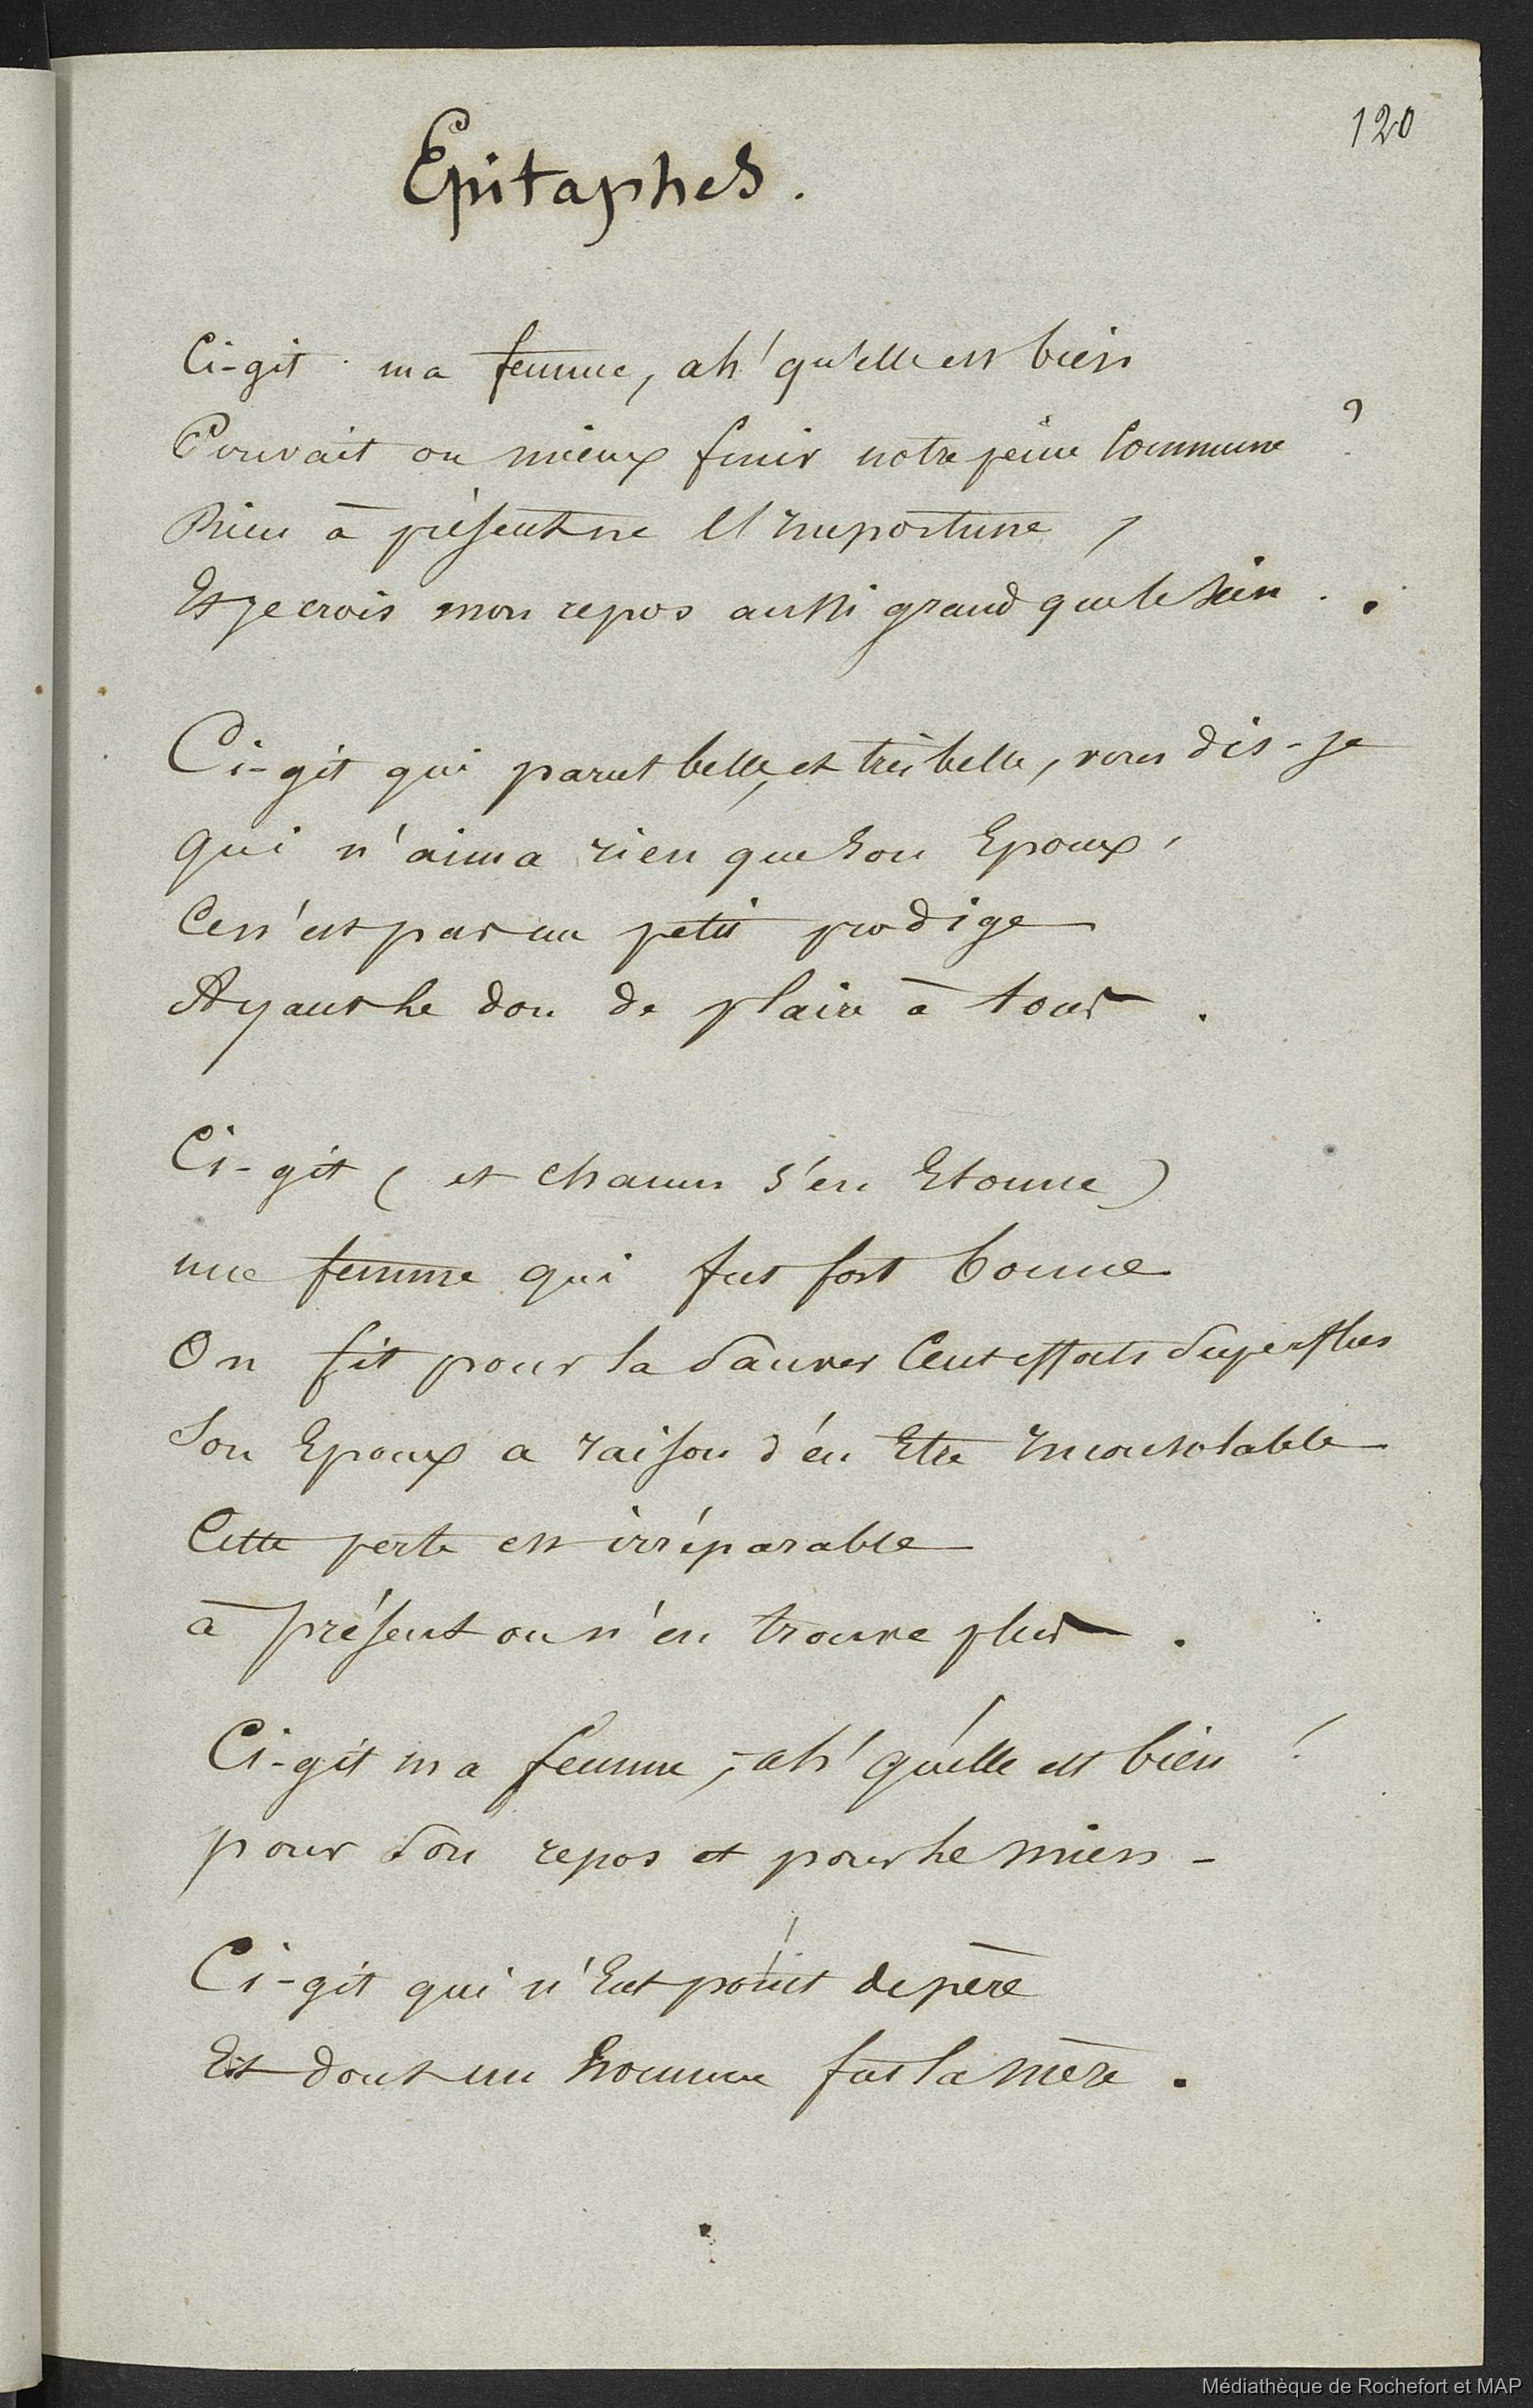 120
Epitaphes.
Ci-git ma femme, ah! qu'elle est bien
Pouvait on mieux finir notre peine commune ?
Rien à présent ne l'importune,
Et je crois mon repos aussi grand que le sien.
Ci-git qui parut belle, et très belle, vous dis-je
qui n'aima rien que son Epoux,
Ce n'est pas un petit prodige
Ayant le don de plaire à tous.
Ci-git (et chacun s'en Etonne)
une femme qui fut fort bonne
On fit pour la sauver Cent efforts superflus
Son Epoux a raison d'en Etre Inconsolable
Cette perte est irréparable
à présent on n'en trouve plus.
Ci-git ma femme, - ah! qu'elle est bien !
pour son repos et pour le mien -
Ci-git qui n'Eut point de père
Et dont un homme fut la mère.
Médiathèque de Rochefort et MAP